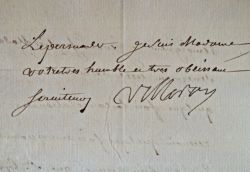 Lepersuader. jesuis Madame
votretres humble et tres obeissant
serviteur Villeroy